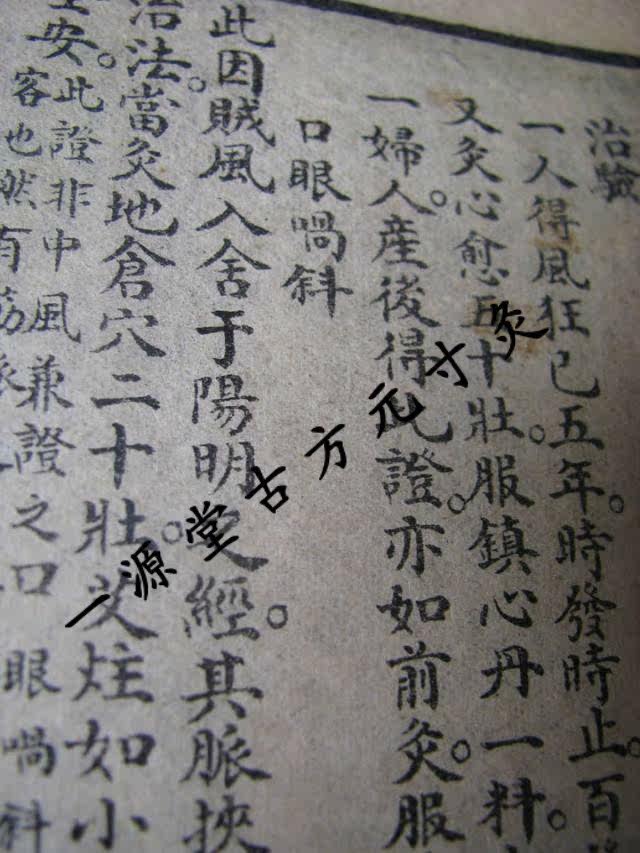 治驗
一人得風狂已五年。時發時止。百
又灸心愈五十壯。服鎮心丹一料。
一婦人產後得此證。亦如前灸。服
口眼喎斜
此因賊風入舍于陽明之經。其脈挾
治法。當灸地倉穴二十壯。艾炷如小
安。此證非中風兼證之口眼喎斜
客也然有筋
一源堂古方元寸灸